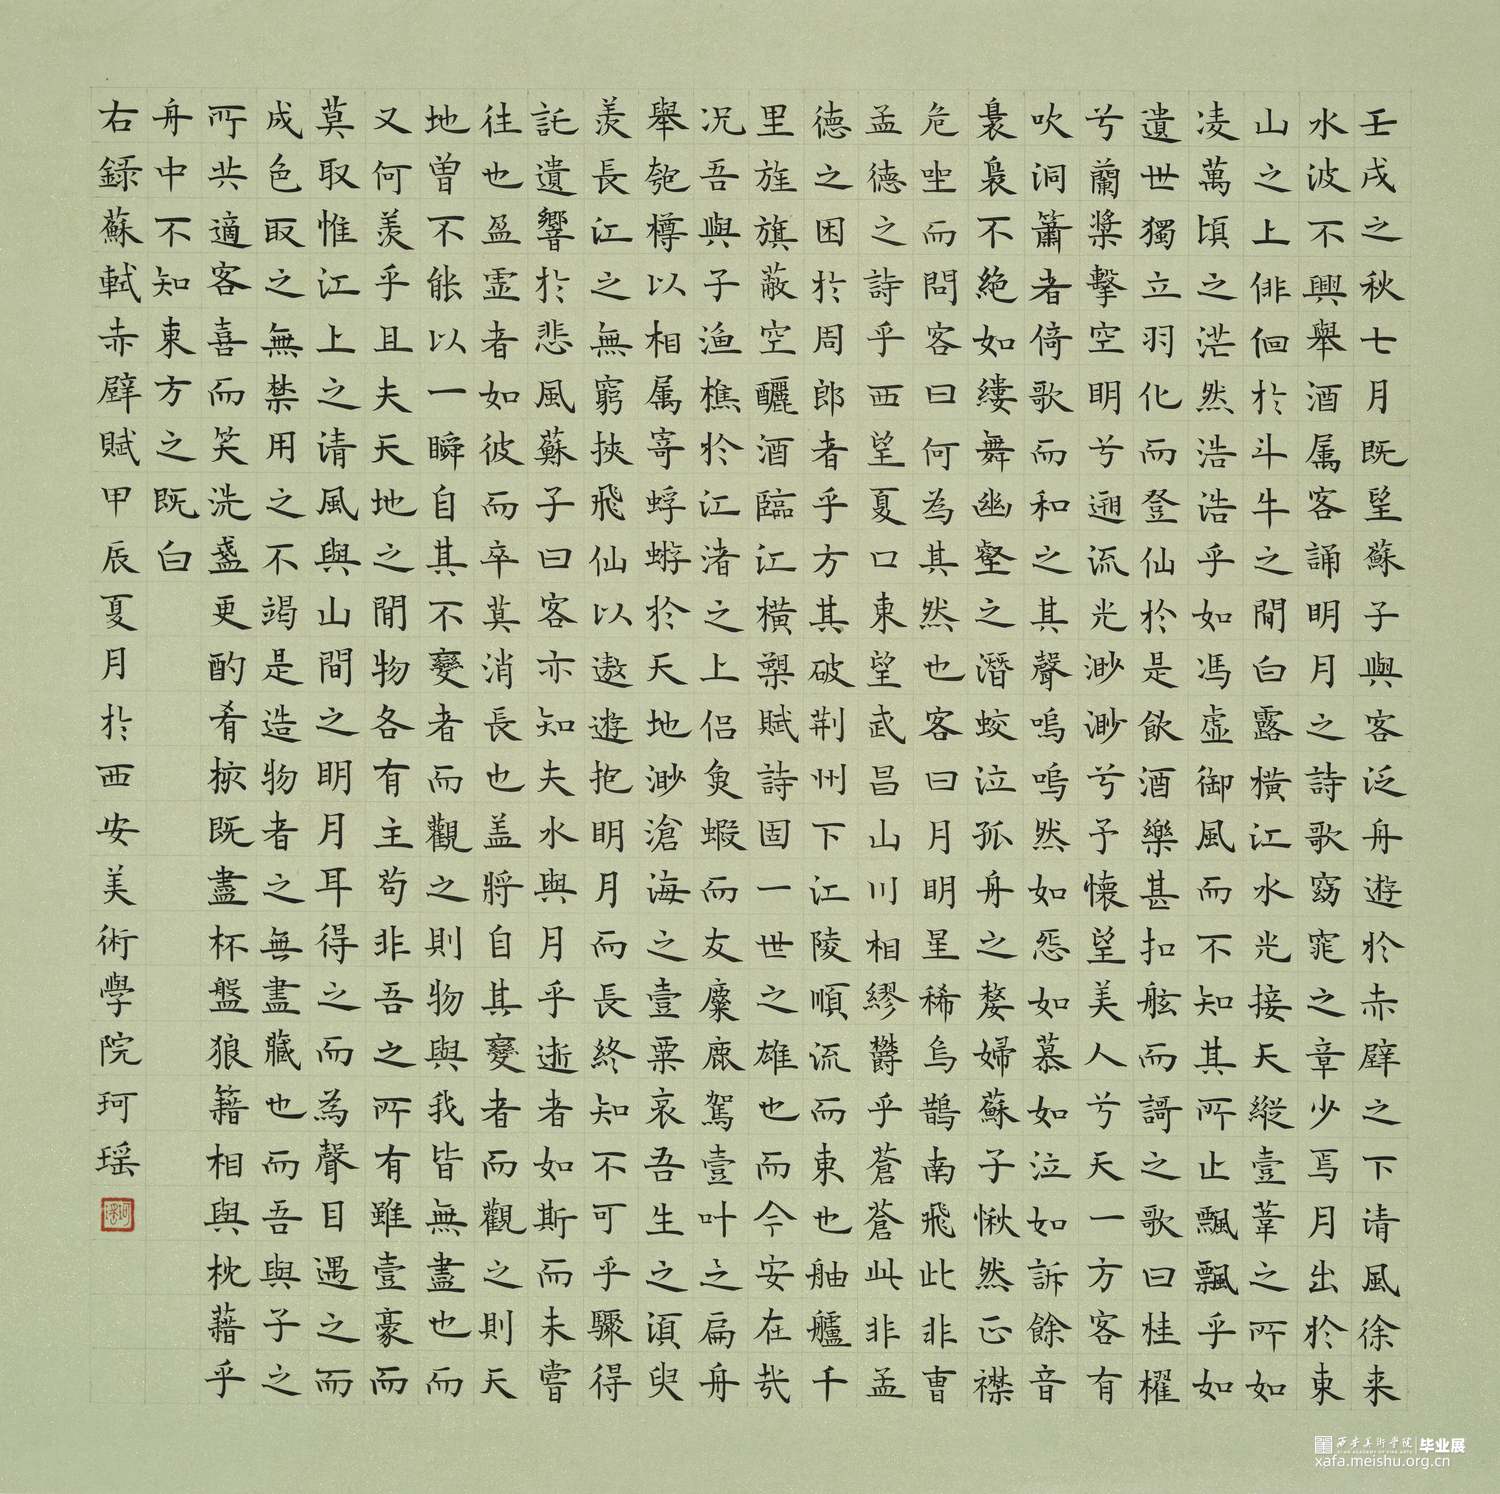 壬戌之秋七月既望蘇子與客泛舟遊於赤壁之下清風徐来
水波不興舉酒属客誦明月之詩歌窈窕之章少焉月出於東
山之上俳佪於斗牛之間白露橫江水光接天縱壹葦之所如
凌萬頃之茫然浩浩乎如馮虛御風而不知其所止飄飄乎如
遺世獨立羽化而登仙於是飲酒樂甚扣舷而謌之歌曰桂櫂
兮蘭槳擊空明兮遡流光渺渺兮予懷望美人兮天一方客有
吹洞簫者倚歌而和之其聲嗚嗚然如怨如慕如泣如訴餘音
裊裊不絕如縷舞幽壑之潛蛟泣孤舟之嫠婦蘇子愀然正襟
危坐而問客曰何為其然也客曰月明星稀烏鵲南飛此非曹
孟德之詩乎西望夏口東望武昌山川相繆鬱乎蒼蒼此非孟
德之困於周郎者乎方其破荆州下江陵順流而東也舳艫千
里旌旗蔽空釃酒臨江橫槊賦詩固一世之雄也而今安在哉
况吾與子渔樵於江渚之上侣魚蝦而友麋鹿駕壹叶之扁舟
舉匏樽以相属寄蜉蝣於天地渺滄海之壹粟哀吾生之須臾
羨長江之無窮挾飛仙以遨遊抱明月而長終知不可乎驟得
託遺響於悲風蘇子曰客亦知夫水與月乎逝者如斯而未嘗
往也盈虛者如彼而卒莫消長也盖將自其變者而觀之則天
地曾不能以一瞬自其不變者而觀之則物與我皆無盡也而
又何羨乎且夫天地之間物各有主苟非吾之所有雖壹豪而
莫取惟江上之清風與山間之明月耳得之而為聲目遇之而
成色取之無禁用之不竭是造物者之無盡藏也而吾與子之
所共適客喜而笑洗盞更酌肴核既盡杯盤狼籍相與枕藉乎
舟中不知東方之既白
右録蘇軾赤壁賦甲辰夏月於西安美術學院珂瑶
西安美術學院 毕业展
xafa.meishu.org.cn